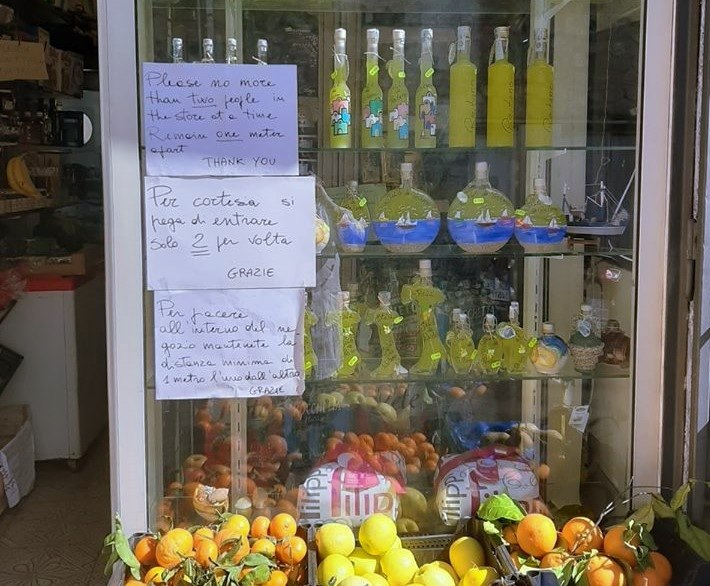 Please no more
than two people in
the store at a time
Remain one meter
apart
THANK YOU
Per cortesa si
prega di entrare
solo 2 per volta
GRAZIE
Per piacere
all'interno del ne
gozio mantenete la
distanza minima di
1 metro l'uno dall'altro
GRAZIE